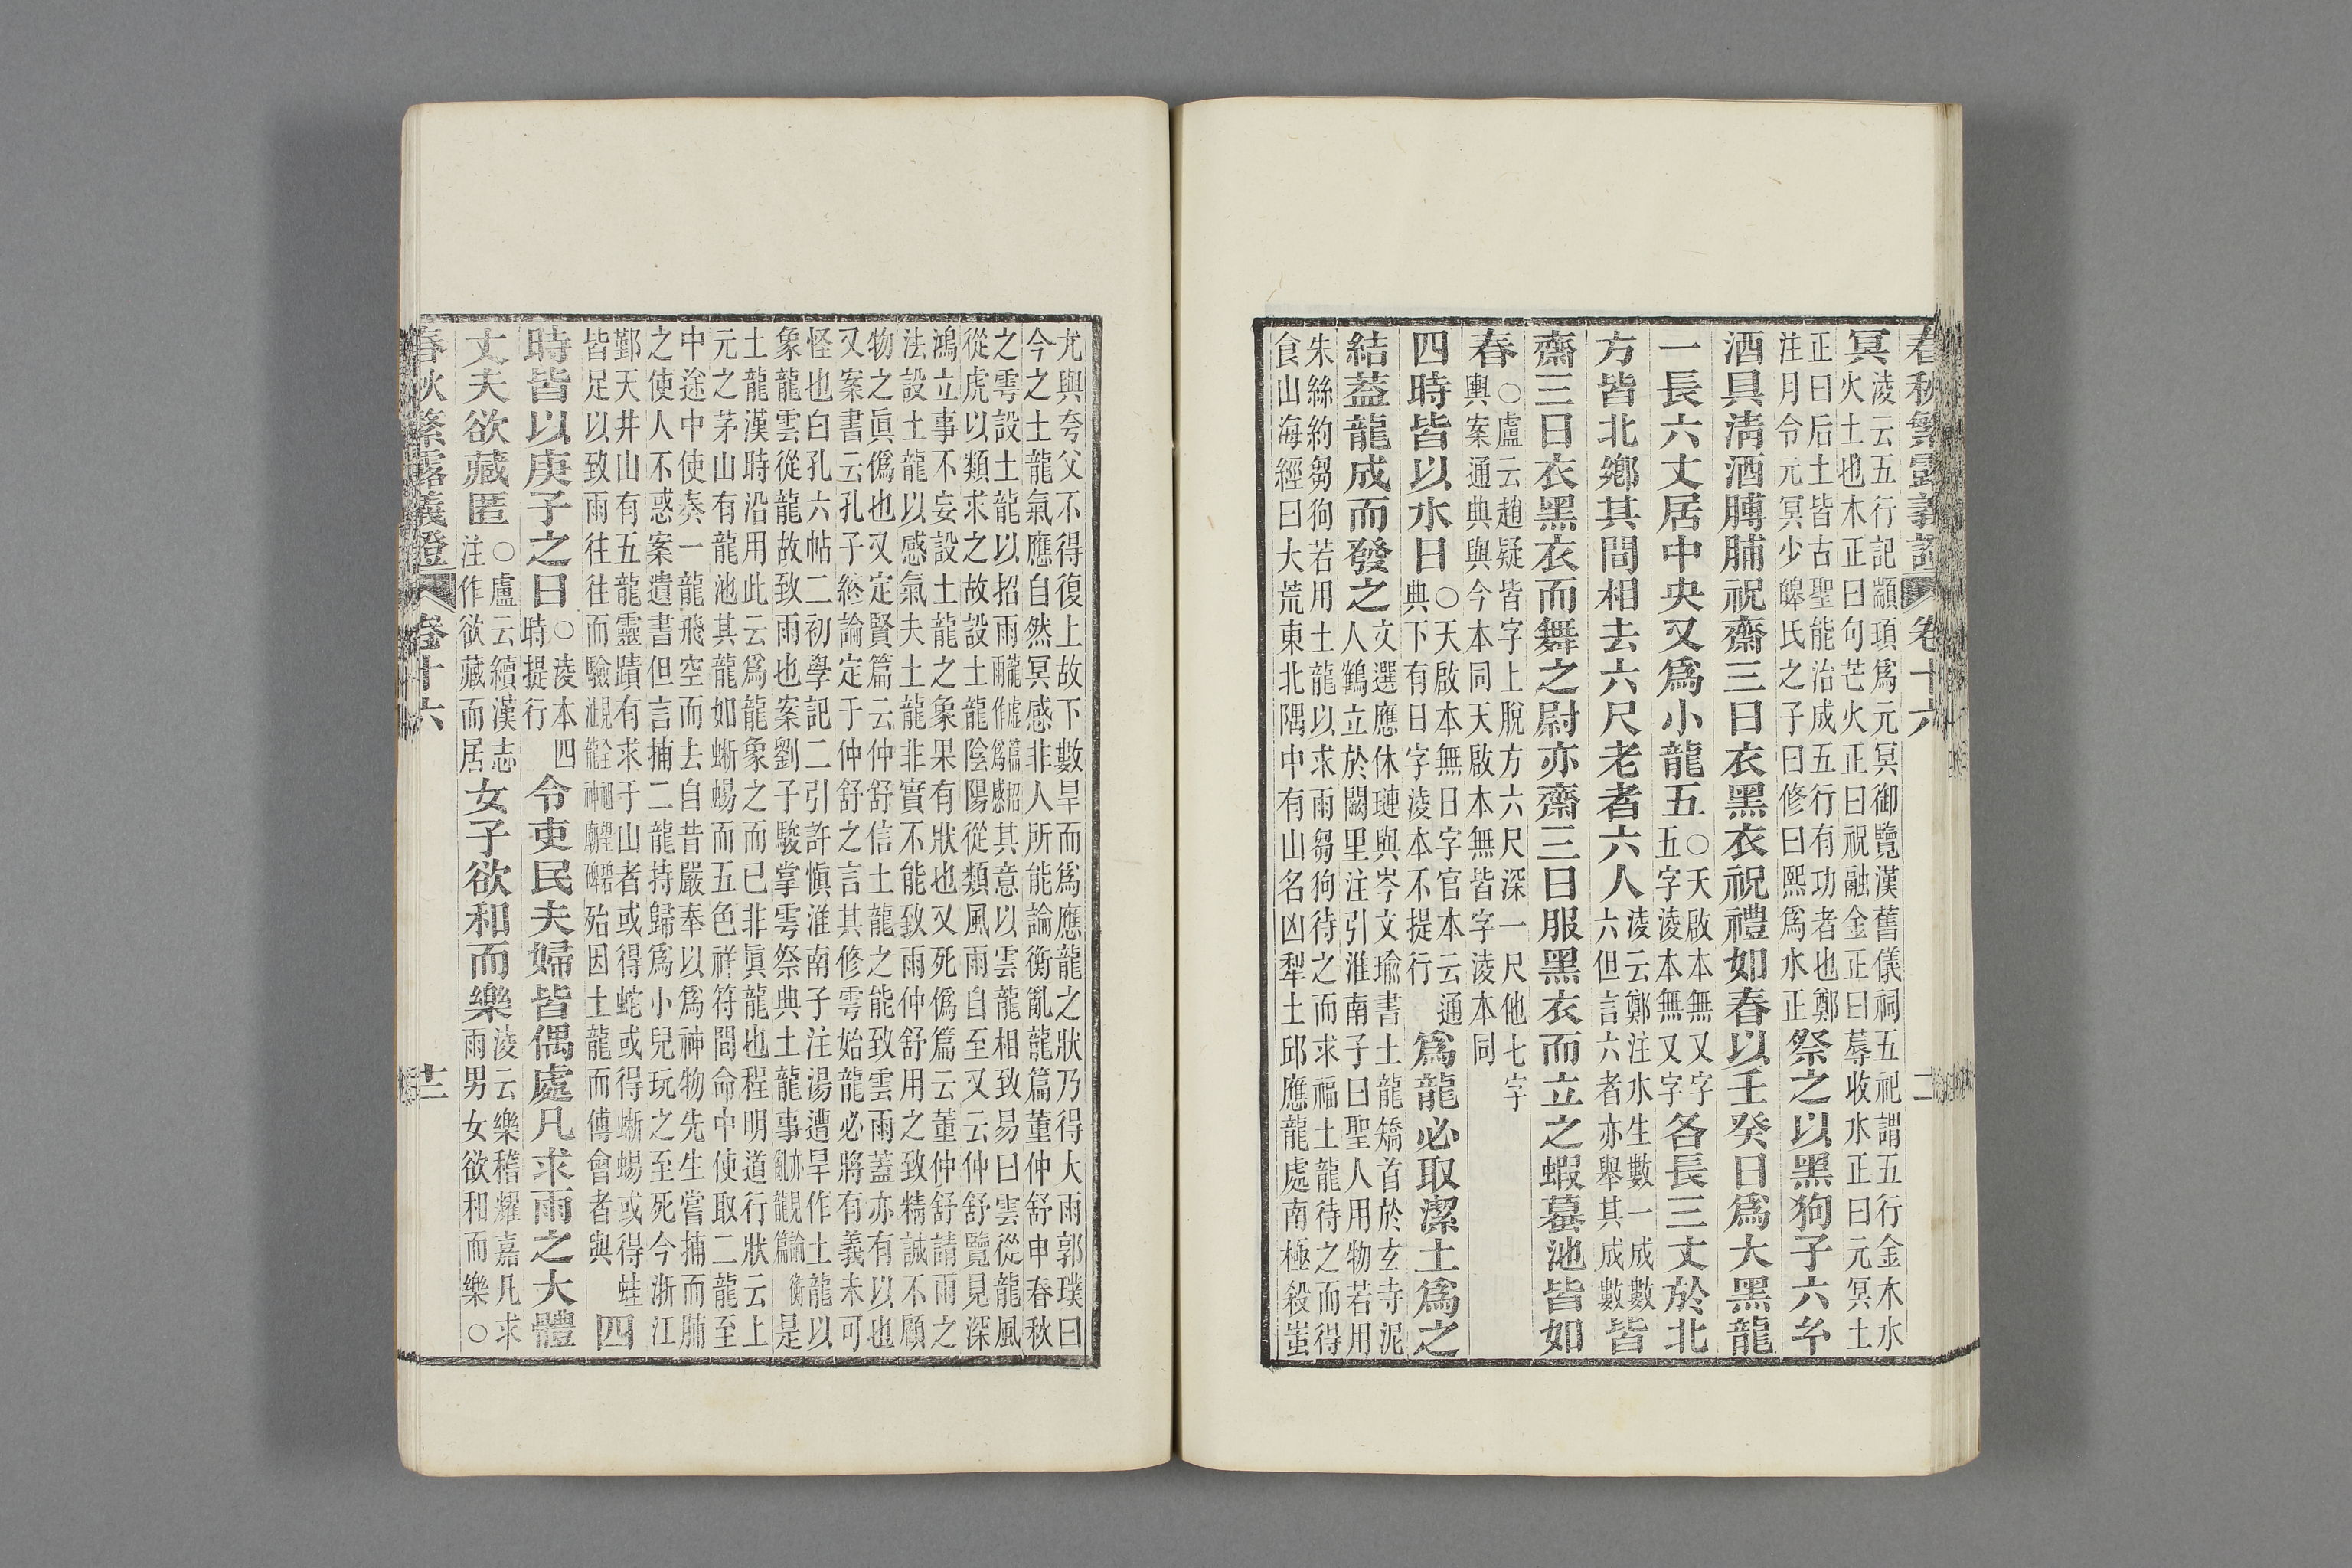 春秋繁露義證 卷十六 二
冥淩云五行記顓頊爲元冥御覽漢舊儀祠五祀謂五行金木水
火土也木正曰句芒火正曰祝融金正曰蓐收水正曰元冥土
正曰后土皆古聖能治成五行有功者也鄭
注月令元冥少皞氏之子曰修曰熙爲水正祭之以黑狗子六玄
酒具淸酒膊脯祝齋三日衣黑衣祝禮如春以壬癸日爲大黑龍
一長六丈居中央又爲小龍五○天啟本無又字
五字淩本無又字各長三丈於北
方皆北鄉其間相去六尺老者六人淩云鄭注水生數一成數
六但言六者亦舉其成數皆
齋三日衣黑衣而舞之尉亦齋三日服黑衣而立之蝦蟇池皆如
春○盧云趙疑皆字上脫方六尺深一尺他七字
輿案通典與今本同天啟本無皆字淩本同
四時皆以水日○天啟本無日字官本云通
典下有日字淩本不提行爲龍必取潔土爲之
結蓋龍成而發之文選應休璉與岑文瑜書土龍矯首於玄寺泥
人鶴立於闕里注引淮南子曰聖人用物若用
朱絲約芻狗若用土龍以求雨芻狗待之而求福土龍待之而得
食山海經曰大荒東北隅中有山名凶犁土邱應龍處南極殺蚩
尤與夸父不得復上故下數旱旱而爲應龍之狀乃得大雨郭璞曰
今之土龍氣應自然冥感非人所能論衡亂龍篇董仲舒申春秋
之雩設土龍以招雨龍虛篇招
雨作爲感其意以雲龍相致易曰雲從龍風
從虎以類求之故設土龍陰陽從類風雨自至又云仲舒覽見深
鴻立事不妄設土龍之象果有狀也又死僞篇云董仲舒請雨之
法設土龍以感氣夫土龍非實不能致雨仲舒用之致精誠不顧
物之眞僞也又定賢篇云仲舒信土龍之能致雲雨蓋亦有以也
又案書云孔子終論定于仲舒之言其修雩始龍必將有義未可
怪也白孔六帖二初學記二引許愼淮南子注湯遭旱作土龍以
象龍雲從龍故致雨也案劉子駿掌雩祭典土龍事亦見論衡
亂龍篇是
土龍漢時沿用此云爲龍象之而已非眞龍也程明道行狀云上
元之茅山有龍池其龍如蜥蜴而五色祥符間命中使取二龍至
中途中使奏一龍飛空而去自昔嚴奉以爲神物先生嘗捕而脯
之使人不惑案遺書但言捕二龍持歸爲小兒玩之至死今浙江
鄞天井山有五龍靈蹟有求于山者或得蛇或得蜥蜴或得蛙
皆足以致雨往往而驗殆因土龍而傅會者與四
時皆以庚子之日○淩本四
時提行令吏民夫婦皆偶處凡求雨之大體
丈夫欲藏匿○盧云續漢志
注作欲藏而居女子欲和而樂淩云樂稽耀嘉凡求
雨男女欲和而樂○
春秋繁露義證 卷十六